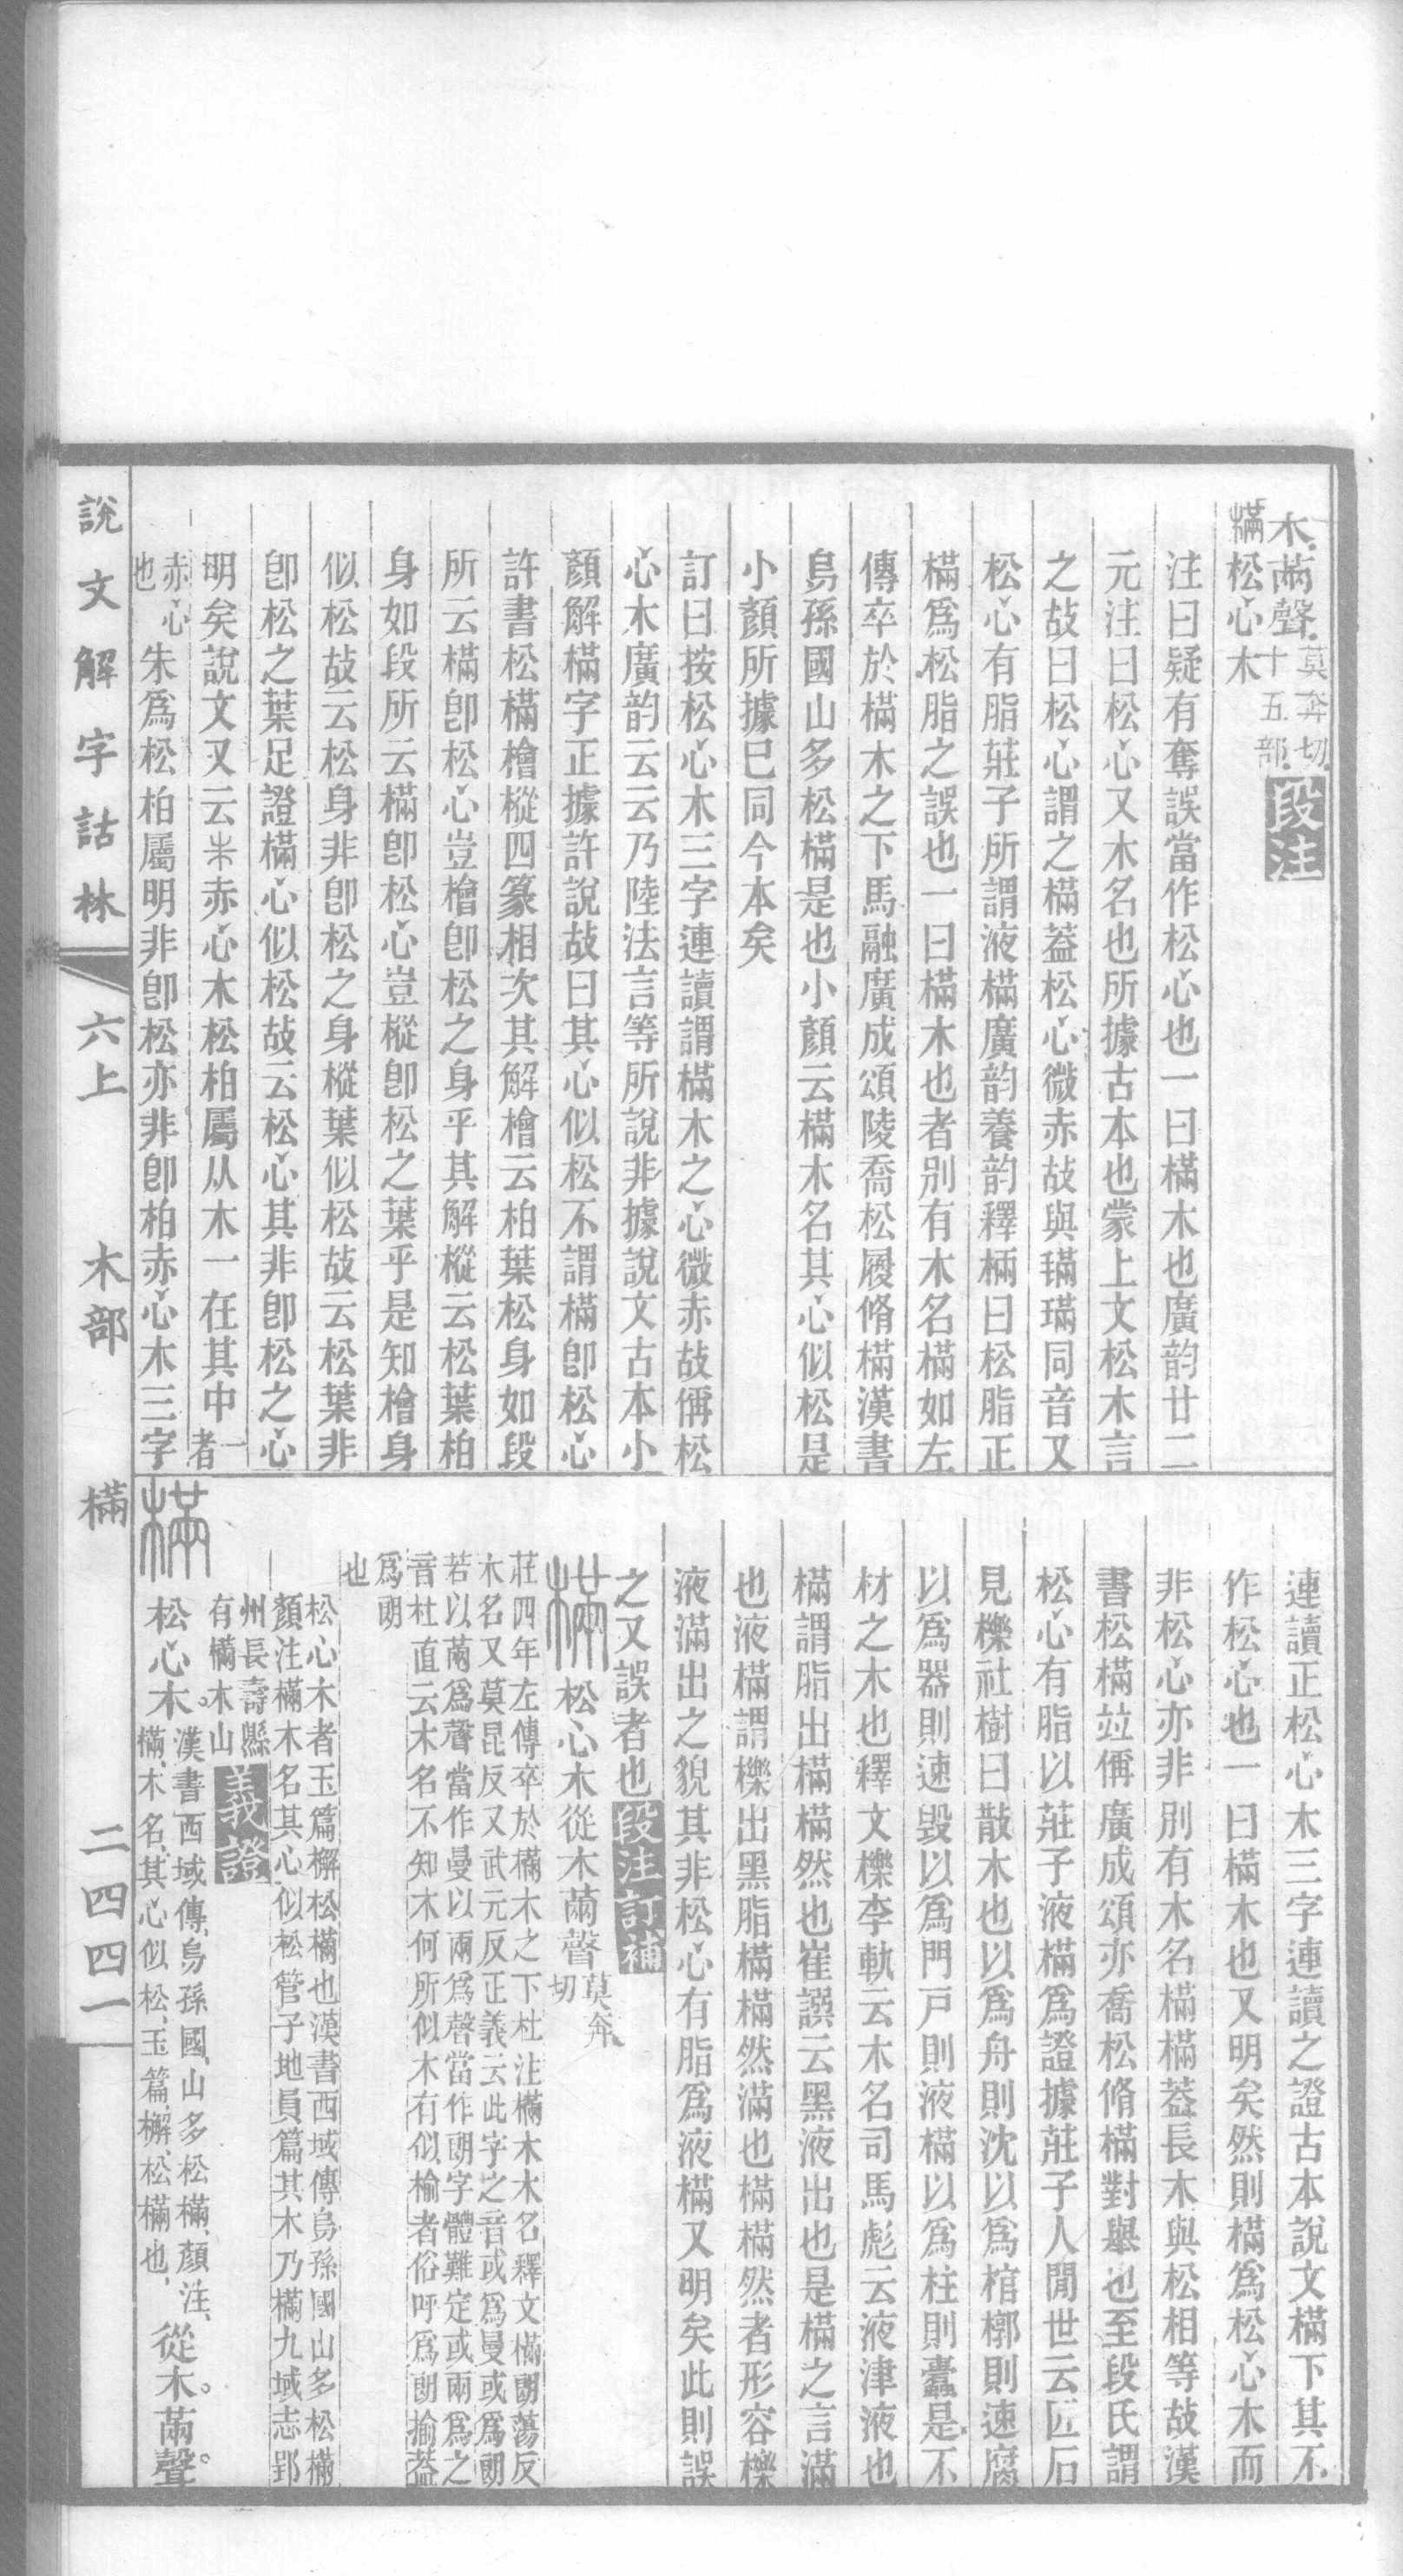 木㒼聲莫奔切十五部段注
樠松心木
注曰疑有奪誤當作松心也一曰樠木也廣韵廿二
元注曰松心又木名也所據古本也蒙上文松木言
之故曰松心謂之樠蓋松心微赤故與璊同音又
松心有脂莊子所謂液樠廣韵養韵釋㭁曰松脂正
樠爲松脂之誤也一曰樠木也者別有木名樠如左
傳卒於樠木之下馬融廣成頌陵喬松履脩樠漢書
烏孫國山多松樠是也小顏云樠木名其心似松是
小顏所據已同今本矣
訂曰按松心木三字連讀謂樠木之心微赤故偁松
心木廣韵云云乃陸法言等所說非據說文古本小
顏解樠字正據許說故曰其心似松不謂樠卽松心
許書松樠檜樅四篆相次其解檜云柏葉松身如段
所云樠卽松心豈檜卽松之身乎其解樅云松葉柏
身如段所云樠卽松心豈樅卽松之葉乎是知檜身
似松故云松身非卽松之身樅葉似松故云松葉非
卽松之葉足證樠心似松故云松心其非卽松之心
明矣說文又云朱赤心木松柏屬从木一在其中一者
赤心也朱爲松柏屬明非卽松亦非卽柏赤心木三字
連讀正松心木三字連讀之證古本說文樠下其不
作松心也一曰樠木也又明矣然則樠爲松心木而
非松心亦非別有木名樠樠蓋長木與松相等故漢
書松樠竝偁廣成頌亦喬松脩樠對舉也至段氏謂
松心有脂以莊子液樠爲證據莊子人閒世云匠石
見櫟社樹曰散木也以爲舟則沈以爲棺槨則速腐
以爲器則速毀以爲門戸則液樠以爲柱則蠹是不
材之木也釋文櫟李軌云木名司馬彪云液津液也
樠謂脂出樠樠然也崔譔云黑液出也是樠之言滿
也液樠謂櫟出黑脂樠樠然滿也樠樠然者形容櫟
液滿出之貌其非松心有脂爲液樠又明矣此則誤
之又誤者也段注訂補
樠松心木從木㒼聲莫奔切
莊四年左傳卒於樠木之下杜注樠木木名釋文樠朗蕩反
木名又莫昆反又武元反正義云此字之音或爲曼或爲朗
若以㒼爲聲當作曼以兩爲聲當作朗字體難定或兩爲之
音杜直云木名不知木何所似木有似榆者俗呼爲朗榆蓋
爲朗
也
松心木者玉篇檞松樠也漢書西域傳烏孫國山多松樠
顏注樠木名其心似松管子地員篇其木乃樠九域志郢
州長壽縣
有樠木山義證
樠松心木漢書西域傳烏孫國山多松樠顏注
樠木名其心似松玉篇檞松樠也從木㒼聲
說文解字詁林 六上 木部 樠 二四四一